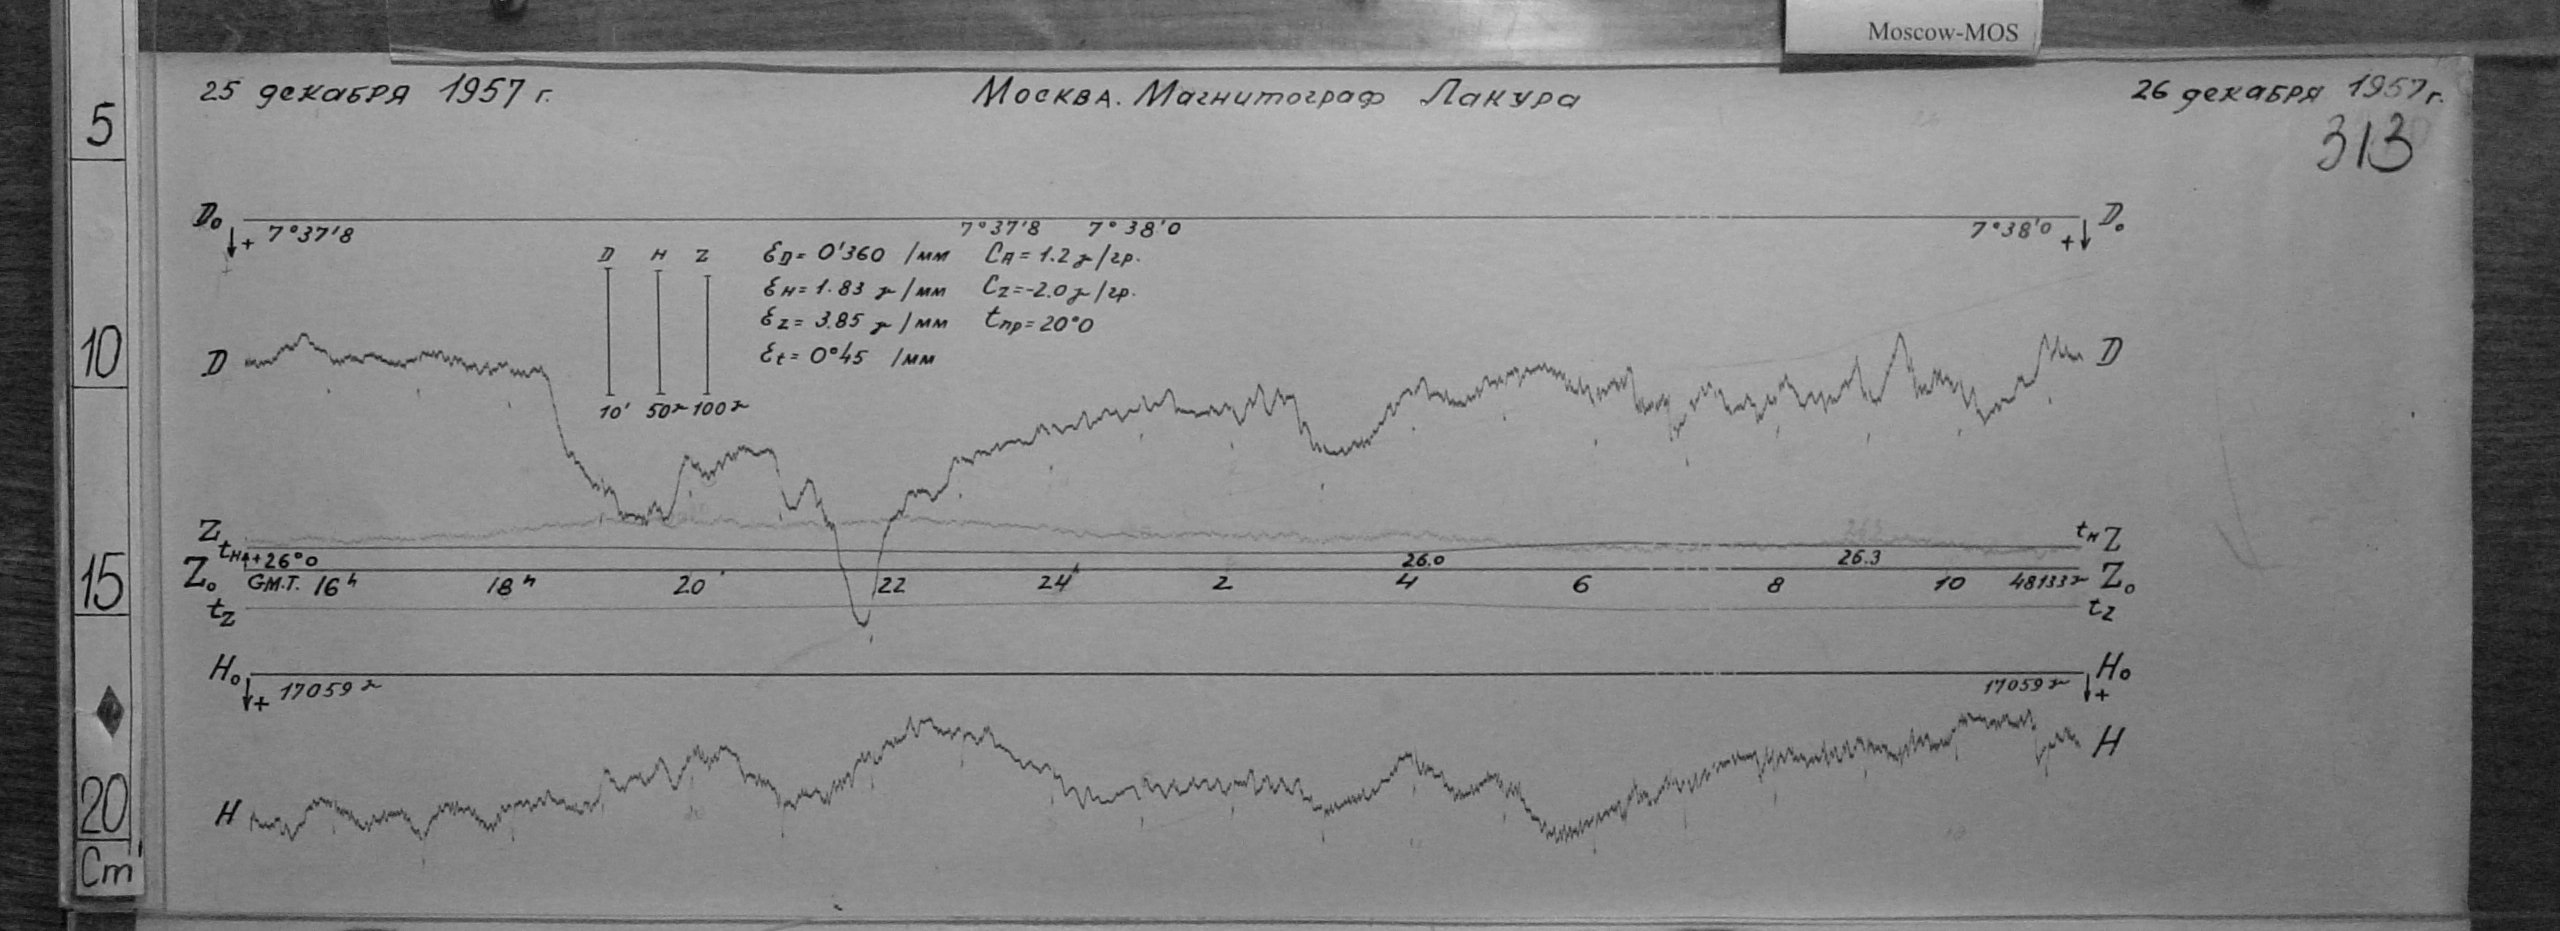 Moscow-MOS
25 декабря 1957 г.
Москва. Магнитограф Лакура
26 декабря 1957 г.
313
5
D₀ D₀
+ 7°37'8 7°37'8 7°38'0 7°38'0 +
D H Z
ε_D = 0'360 /мм C_H = 1.2 γ/гр.
ε_H = 1.83 γ/мм C_Z = -2.0 γ/гр.
ε_Z = 3.85 γ/мм t_пр = 20°0
ε_t = 0°45 /мм
10
D D
10' 50γ 100γ
Z t_H Z
t_H + 26°0 26.0 26.3
15
Z₀ G.M.T. 16ʰ 18ʰ 20 22 24ʰ 2 4 6 8 10 48133γ Z₀
t_Z t_Z
H₀ H₀
+ 17059γ 17059γ +
H H
20
Cm